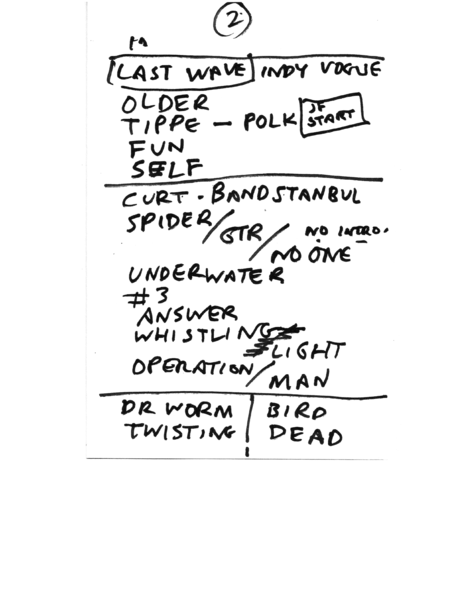 2
LAST WAVE INDY VOGUE
OLDER
TIPPE - POLK JF START
FUN
SELF
CURT - BANDSTANBUL
SPIDER/GTR/NO ONE NO INTRO.
UNDERWATER
#3
ANSWER
WHISTLING
LIGHT
OPERATION/MAN
DR WORM | BIRD
TWISTING | DEAD